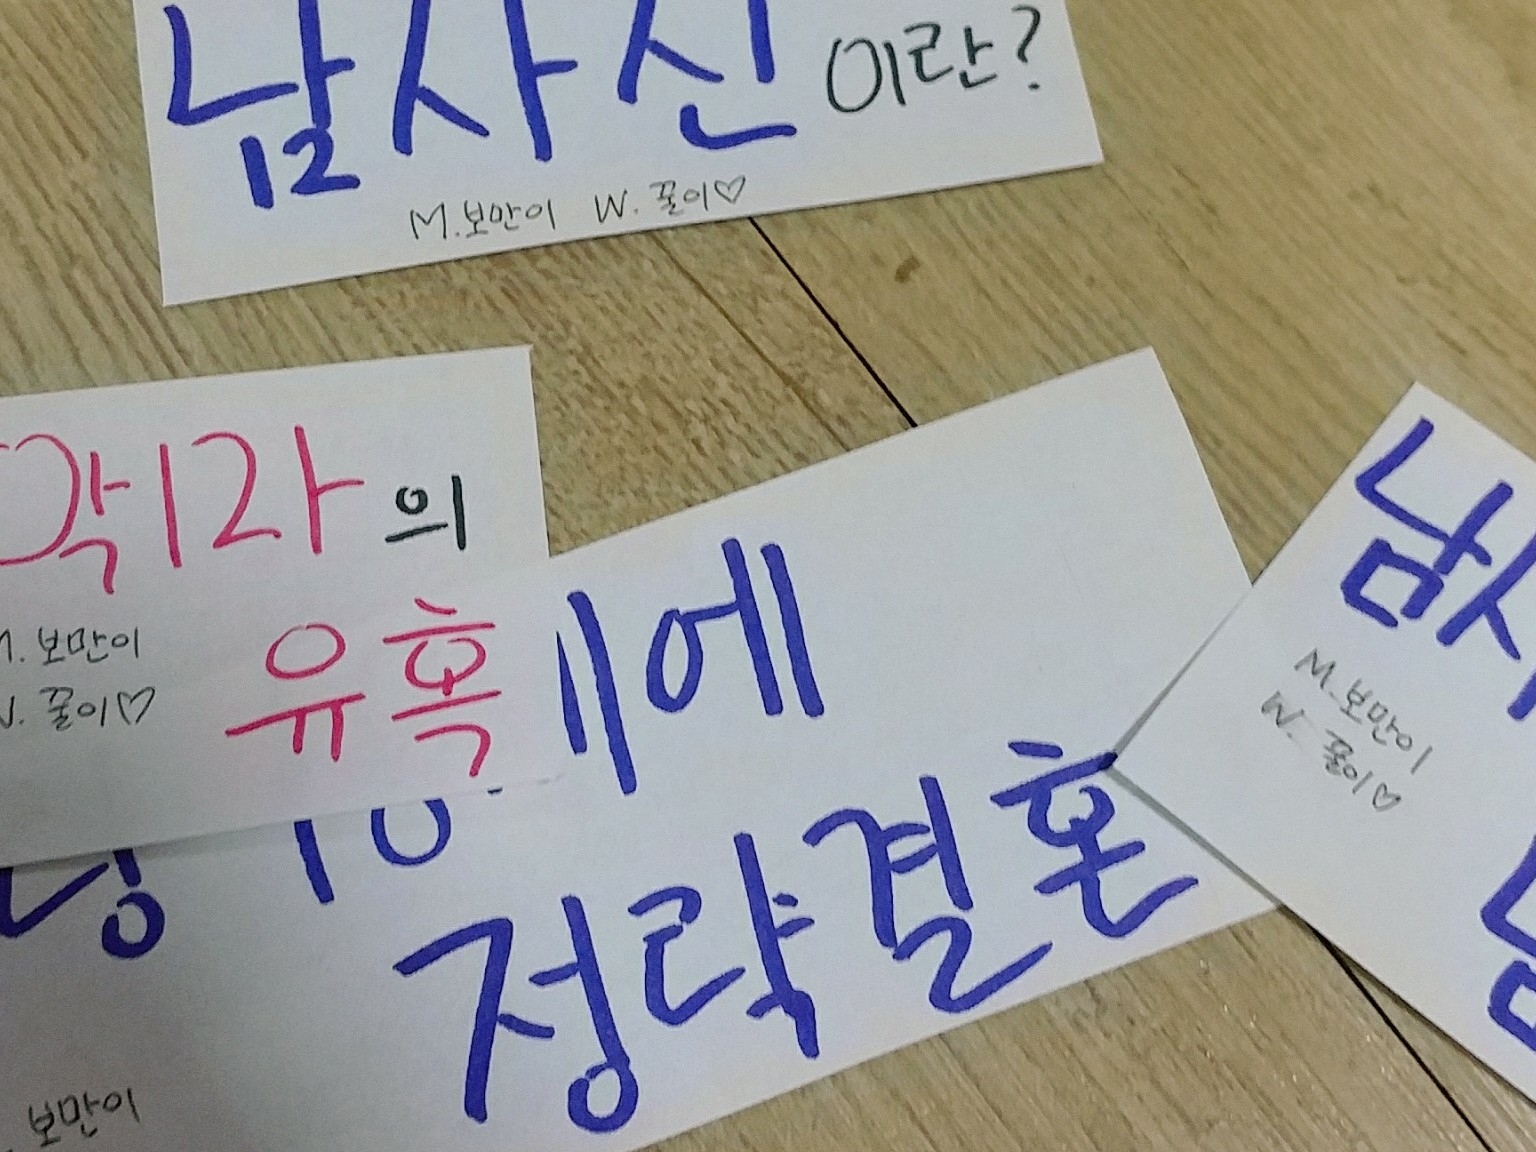 남사친이란?
M.보만이 W. 꿀이♡
의
유혹
M. 보만이
W. 꿀이♡
에
정략결혼
보만이
남사
M.보만이
W. 꿀이♡